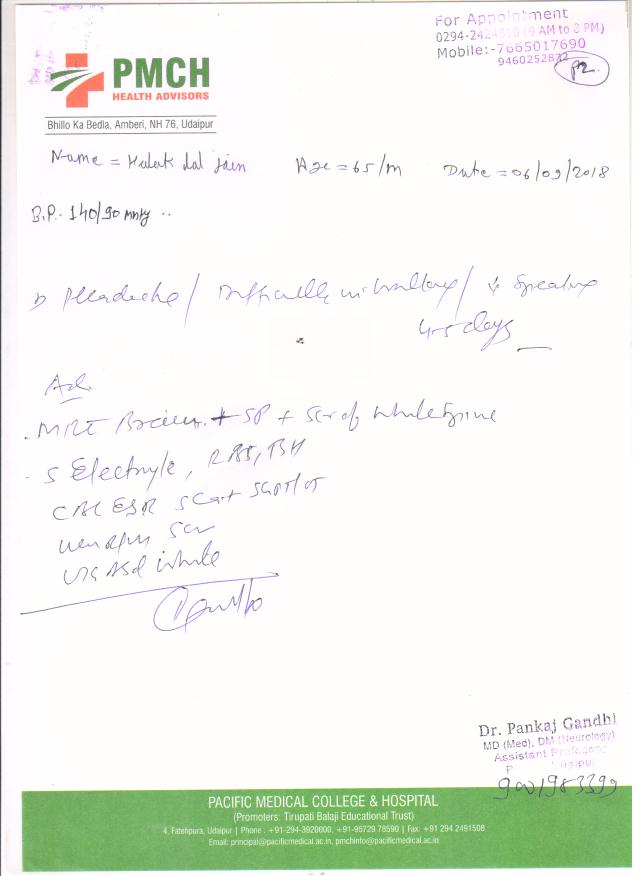 For Appointment
0294-2424810 (9 AM to 8 PM)
Mobile:-7665017690
9460252872
P2.
PMCH
HEALTH ADVISORS
Bhillo Ka Bedla, Amberi, NH 76, Udaipur
Name = lal Jain Age = 65/m Date = 06/09/2018
B.P.- 140/90 mmHg
Headache / Difficulty in / Speaking
4-5 days
Adv.
- MRI Brain + SP + Scr of Whole Spine
- S Electrolyte, RBS,
CBC ESR S Creat SGOT/PT
USG Abd Whole
Dr. Pankaj Gandhi
MD (Med), DM (Neurology)
Assistant Professor
9001983399
PACIFIC MEDICAL COLLEGE & HOSPITAL
(Promoters: Tirupati Balaji Educational Trust)
4, Fatehpura, Udaipur | Phone : +91-294-3920000, +91-95729 78590 | Fax: +91 294 2491508
Email: principal@pacificmedical.ac.in, pmchinfo@pacificmedical.ac.in